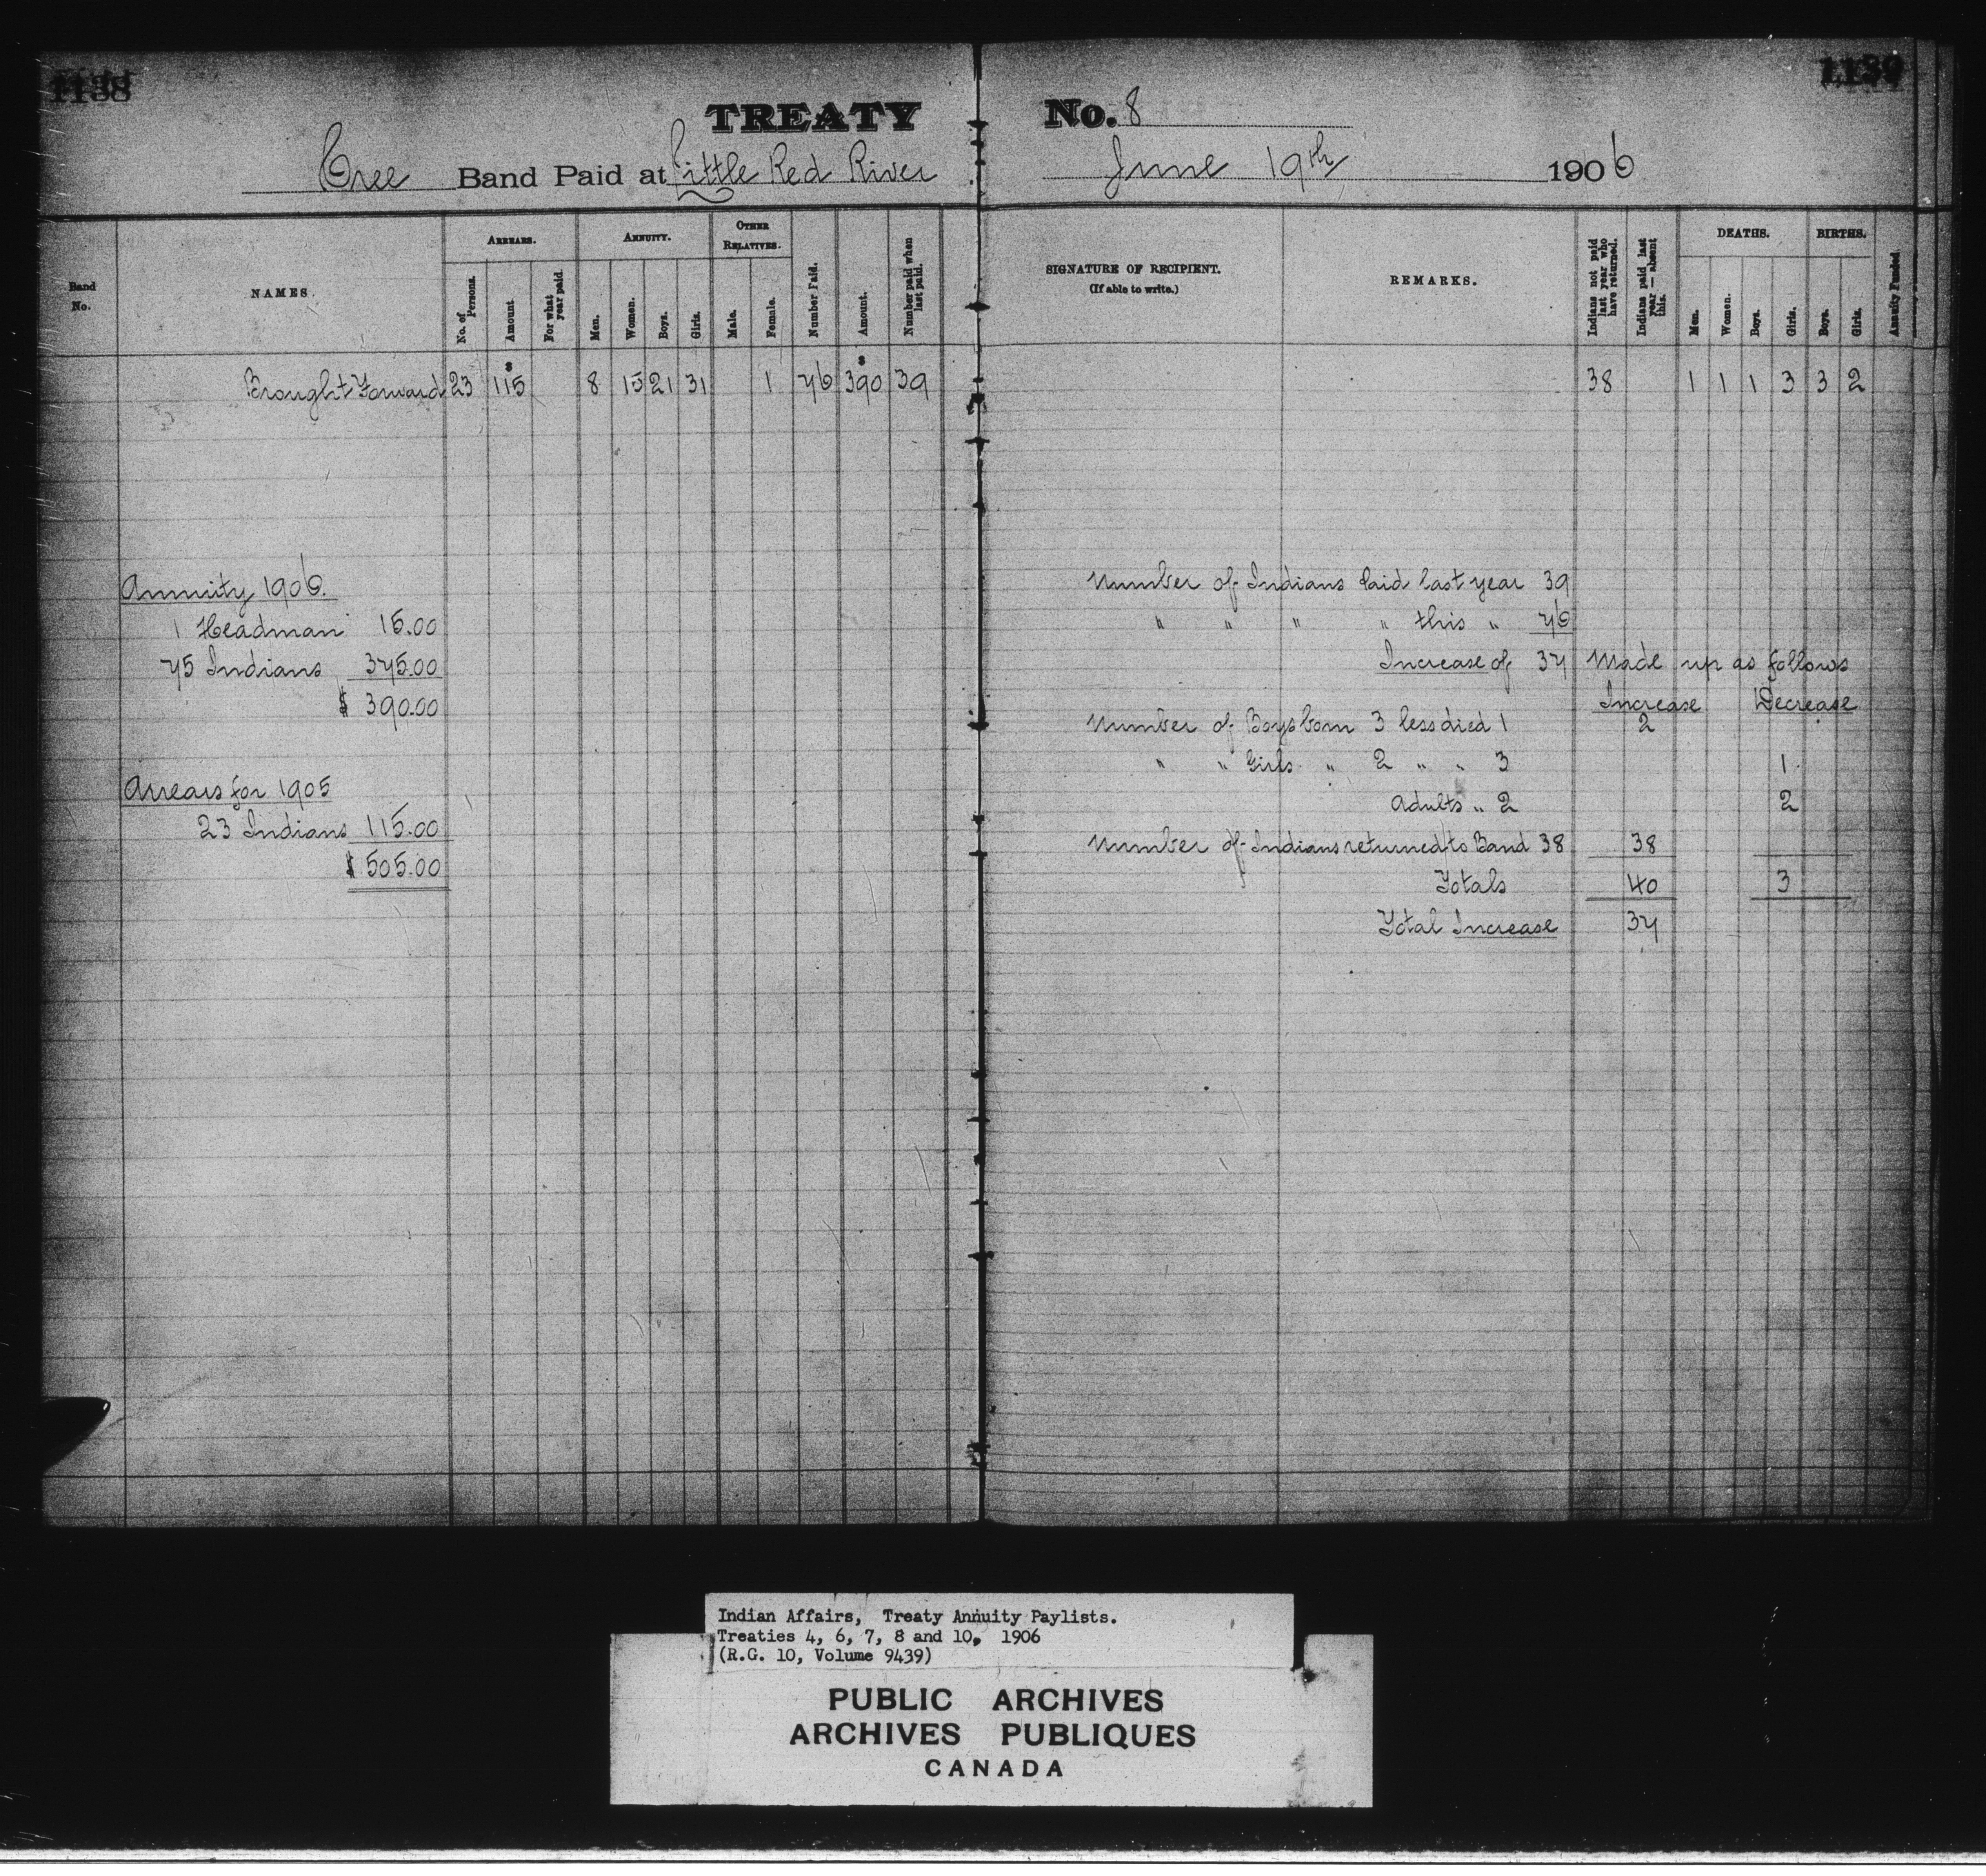 1138
1139
TREATY No. 8
Cree Band Paid at Little Red River June 19th 1906
Band No.
NAMES.
ARREARS.
No. of Persons.
Amount
For what year paid.
ANNUITY.
Men.
Women.
Boys.
Girls.
OTHER RELATIVES.
Male.
Female.
Number Paid.
Amount.
Number paid when last paid.
SIGNATURE OF RECIPIENT.
(If able to write.)
REMARKS.
Indians not paid last year who have returned.
Indians paid last year — absent this.
DEATHS.
Men.
Women.
Boys.
Girls.
BIRTHS.
Boys.
Girls.
Annuity Funded.
$ $
Brought Forward 23 115 8 15 21 31 1 76 390 39 38 1 1 1 3 3 2
Annuity 1906.
1 Headman 15.00
75 Indians 375.00
$ 390.00
Arrears for 1905
23 Indians 115.00
$ 505.00
Number of Indians Paid last year 39
" " " " this " 76
Increase of 37 Made up as follows
Increase Decrease
Number of Boys born 3 less died 1 2
" " Girls " 2 " " 3 1
Adults " 2 2
Number of Indians returned to Band 38 38
Totals 40 3
Total Increase 37
Indian Affairs, Treaty Annuity Paylists.
Treaties 4, 6, 7, 8 and 10, 1906
(R.G. 10, Volume 9439)
PUBLIC ARCHIVES
ARCHIVES PUBLIQUES
CANADA